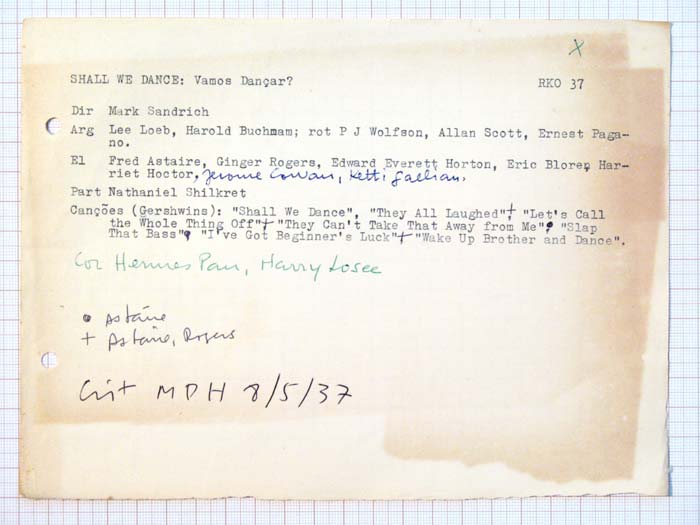 X
SHALL WE DANCE: Vamos Dançar? RKO 37
Dir Mark Sandrich
Arg Lee Loeb, Harold Buchmam; rot P J Wolfson, Allan Scott, Ernest Paga-
no.
El Fred Astaire, Ginger Rogers, Edward Everett Horton, Eric Blore, Har-
riet Hoctor, Jerome Cowan, Ketti Gallian.
Part Nathaniel Shilkret
Canções (Gershwins): "Shall We Dance", "They All Laughed"+ "Let's Call
the Whole Thing Off"+ "They Can't Take That Away from Me"• "Slap
That Bass"• "I've Got Beginner's Luck"+ "Wake Up Brother and Dance".
Cor Hermes Pan, Harry Losee
• Astaire
+ Astaire, Rogers
Crit MDH 8/5/37